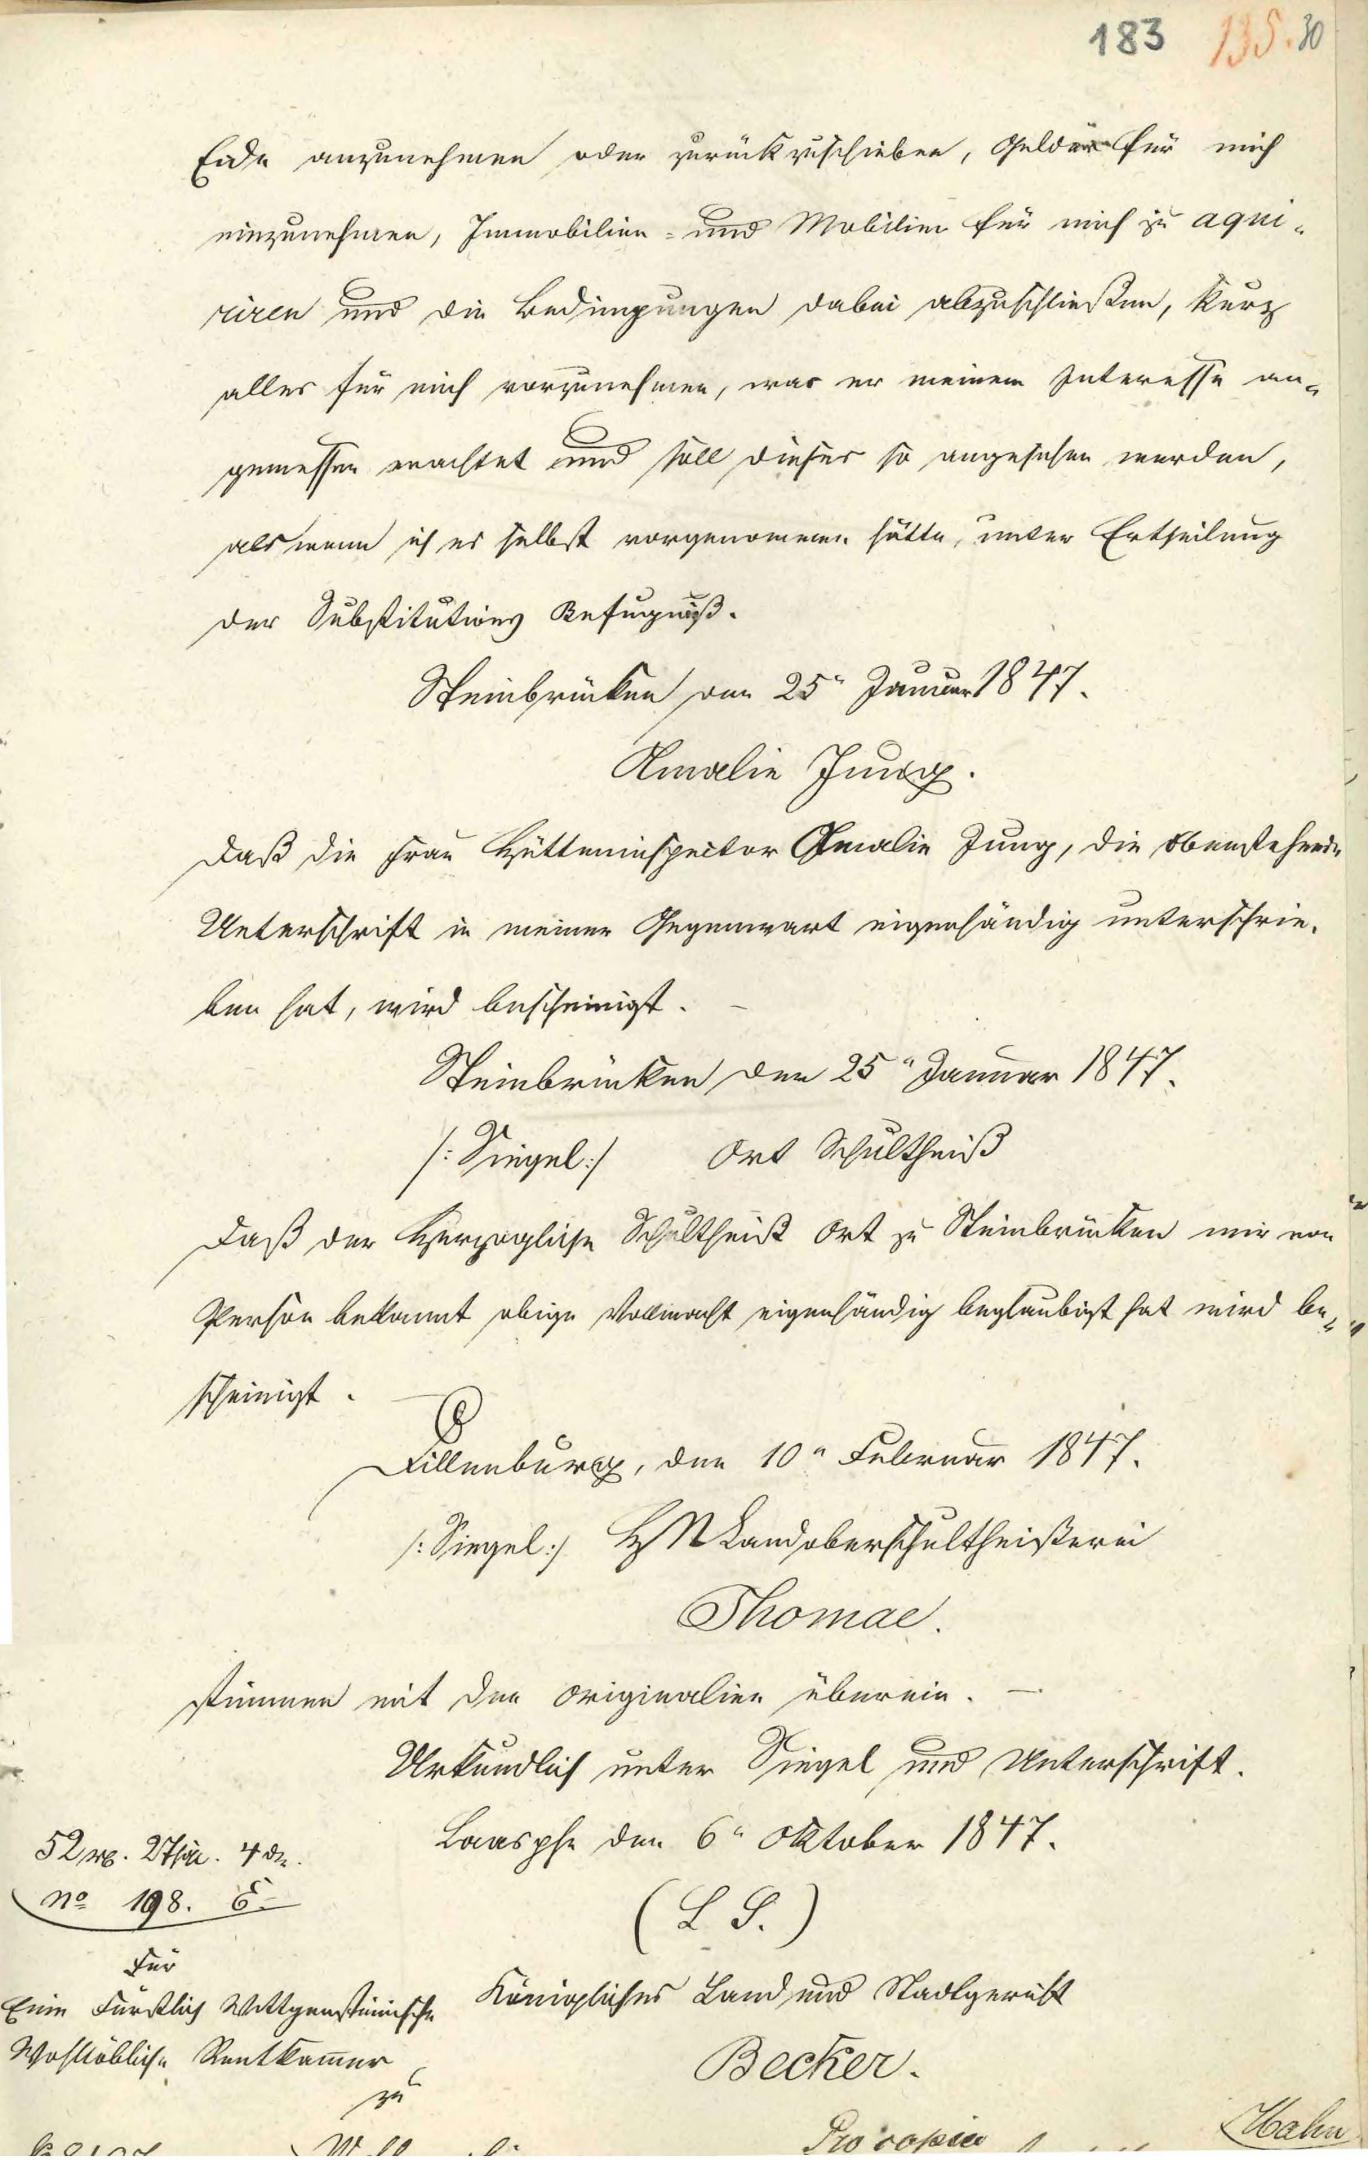 183 135. 30
Eide anzunehmen oder zurückzuschieben, Gelder für mich
einzunehmen, Immobilien- und Mobilien für mich zu aqui-
riren und die Bedingungen dabei abzuschließen, kurz
alles für mich vorzunehmen, was er meinem Interesse an-
gemessen erachtet und soll dieses so angesehen werden,
als wenn ich es selbst vorgenommen hätte, unter Ertheilung
der Substitutions Befugniß.
Steinbrücken den 25n Januar 1847.
Amalie Jung.
Daß die Frau Hütteninspector Amalie Jung, die obenstehende
Unterschrift in meiner Gegenwart eigenhändig unterschrie-
ben hat, wird bescheinigt. –
Steinbrücken den 25n Januar 1847.
/: Siegel :/ Ort Schultheiß
Daß der Herzogliche Schultheiß Ort zu Steinbrücken mir von
Person bekannt obige Vollmacht eigenhändig beglaubigt hat wird be-
scheinigt. –
Dillenburg, den 10n Februar 1847.
/: Siegel :/ HN Landoberschultheißerei
Thomae.
stimmen mit den Originalien überein. –
Urkundlich unter Siegel und Unterschrift.
Laasphe den 6n Oktober 1847.
(L S.)
Königliches Land und Stadtgericht
Becker.
52 4
No 198. E.
Für
Eine Fürstlich Wittgensteinische
Wohllöbliche Rentkammer
zu
Pro copia
Hahn